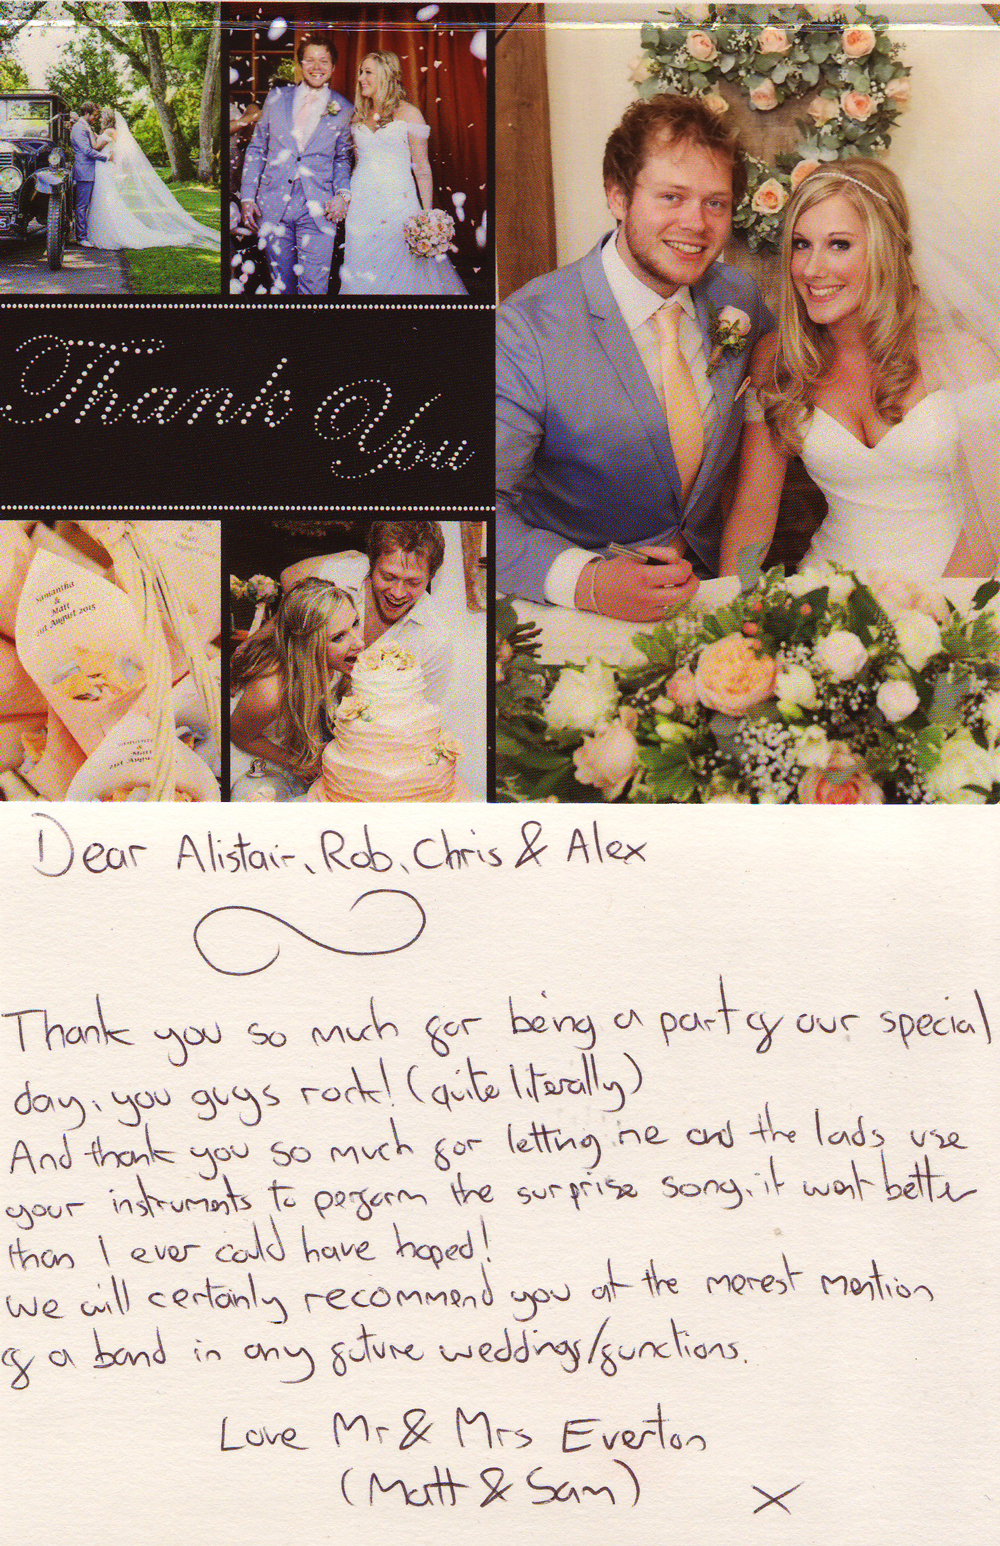 Thank
You
Samantha
&
Matt
21st August 2015
Samantha
&
Matt
21st August
Matt
Dear Alistair, Rob, Chris & Alex
Thank you so much for being a part of our special
day, you guys rock! (quite literally)
And thank you so much for letting me and the lads use
your instruments to perform the surprise song, it went better
than I ever could have hoped!
We will certainly recommend you at the merest mention
of a band in any future weddings/functions.
Love Mr & Mrs Everton
(Matt & Sam) X